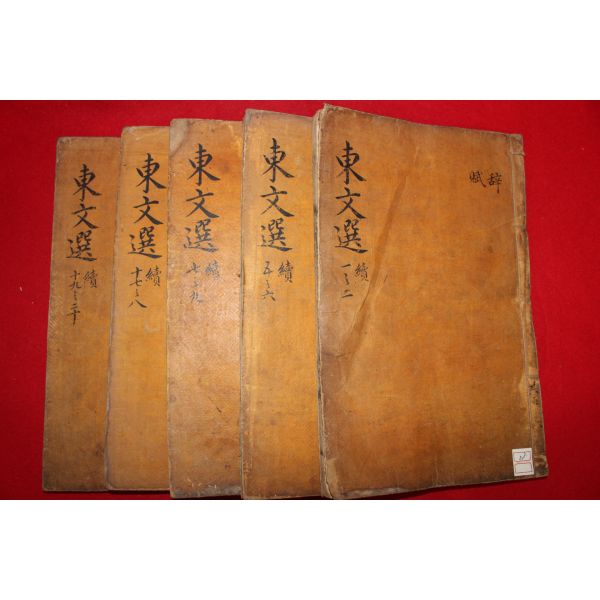 東文選
續
一之二
辭
賦
東文選
續
五之六
東文選
續
七之九
東文選
續
十七之八
東文選
續
十九之二十